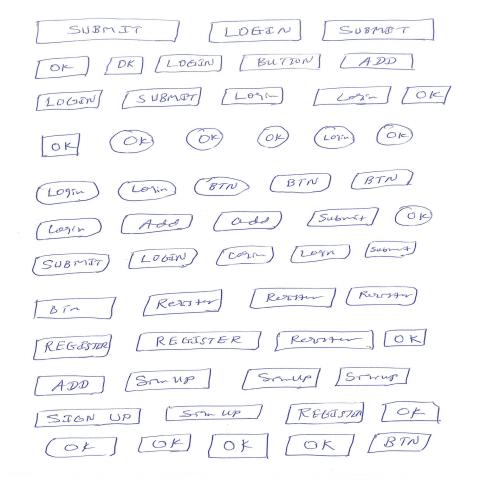 SUBMIT LOGIN SUBMIT
OK OK LOGIN BUTTON ADD
LOGIN SUBMIT Login Login OK
OK OK OK OK Login OK
Login Login BTN BTN BTN
Login Add add Submit OK
SUBMIT LOGIN Login Login Submit
Btn Register Register Register
REGISTER REGISTER Register OK
ADD SignUP SignUP Signup
SIGN UP Sign UP REGISTER OK
OK OK OK OK BTN